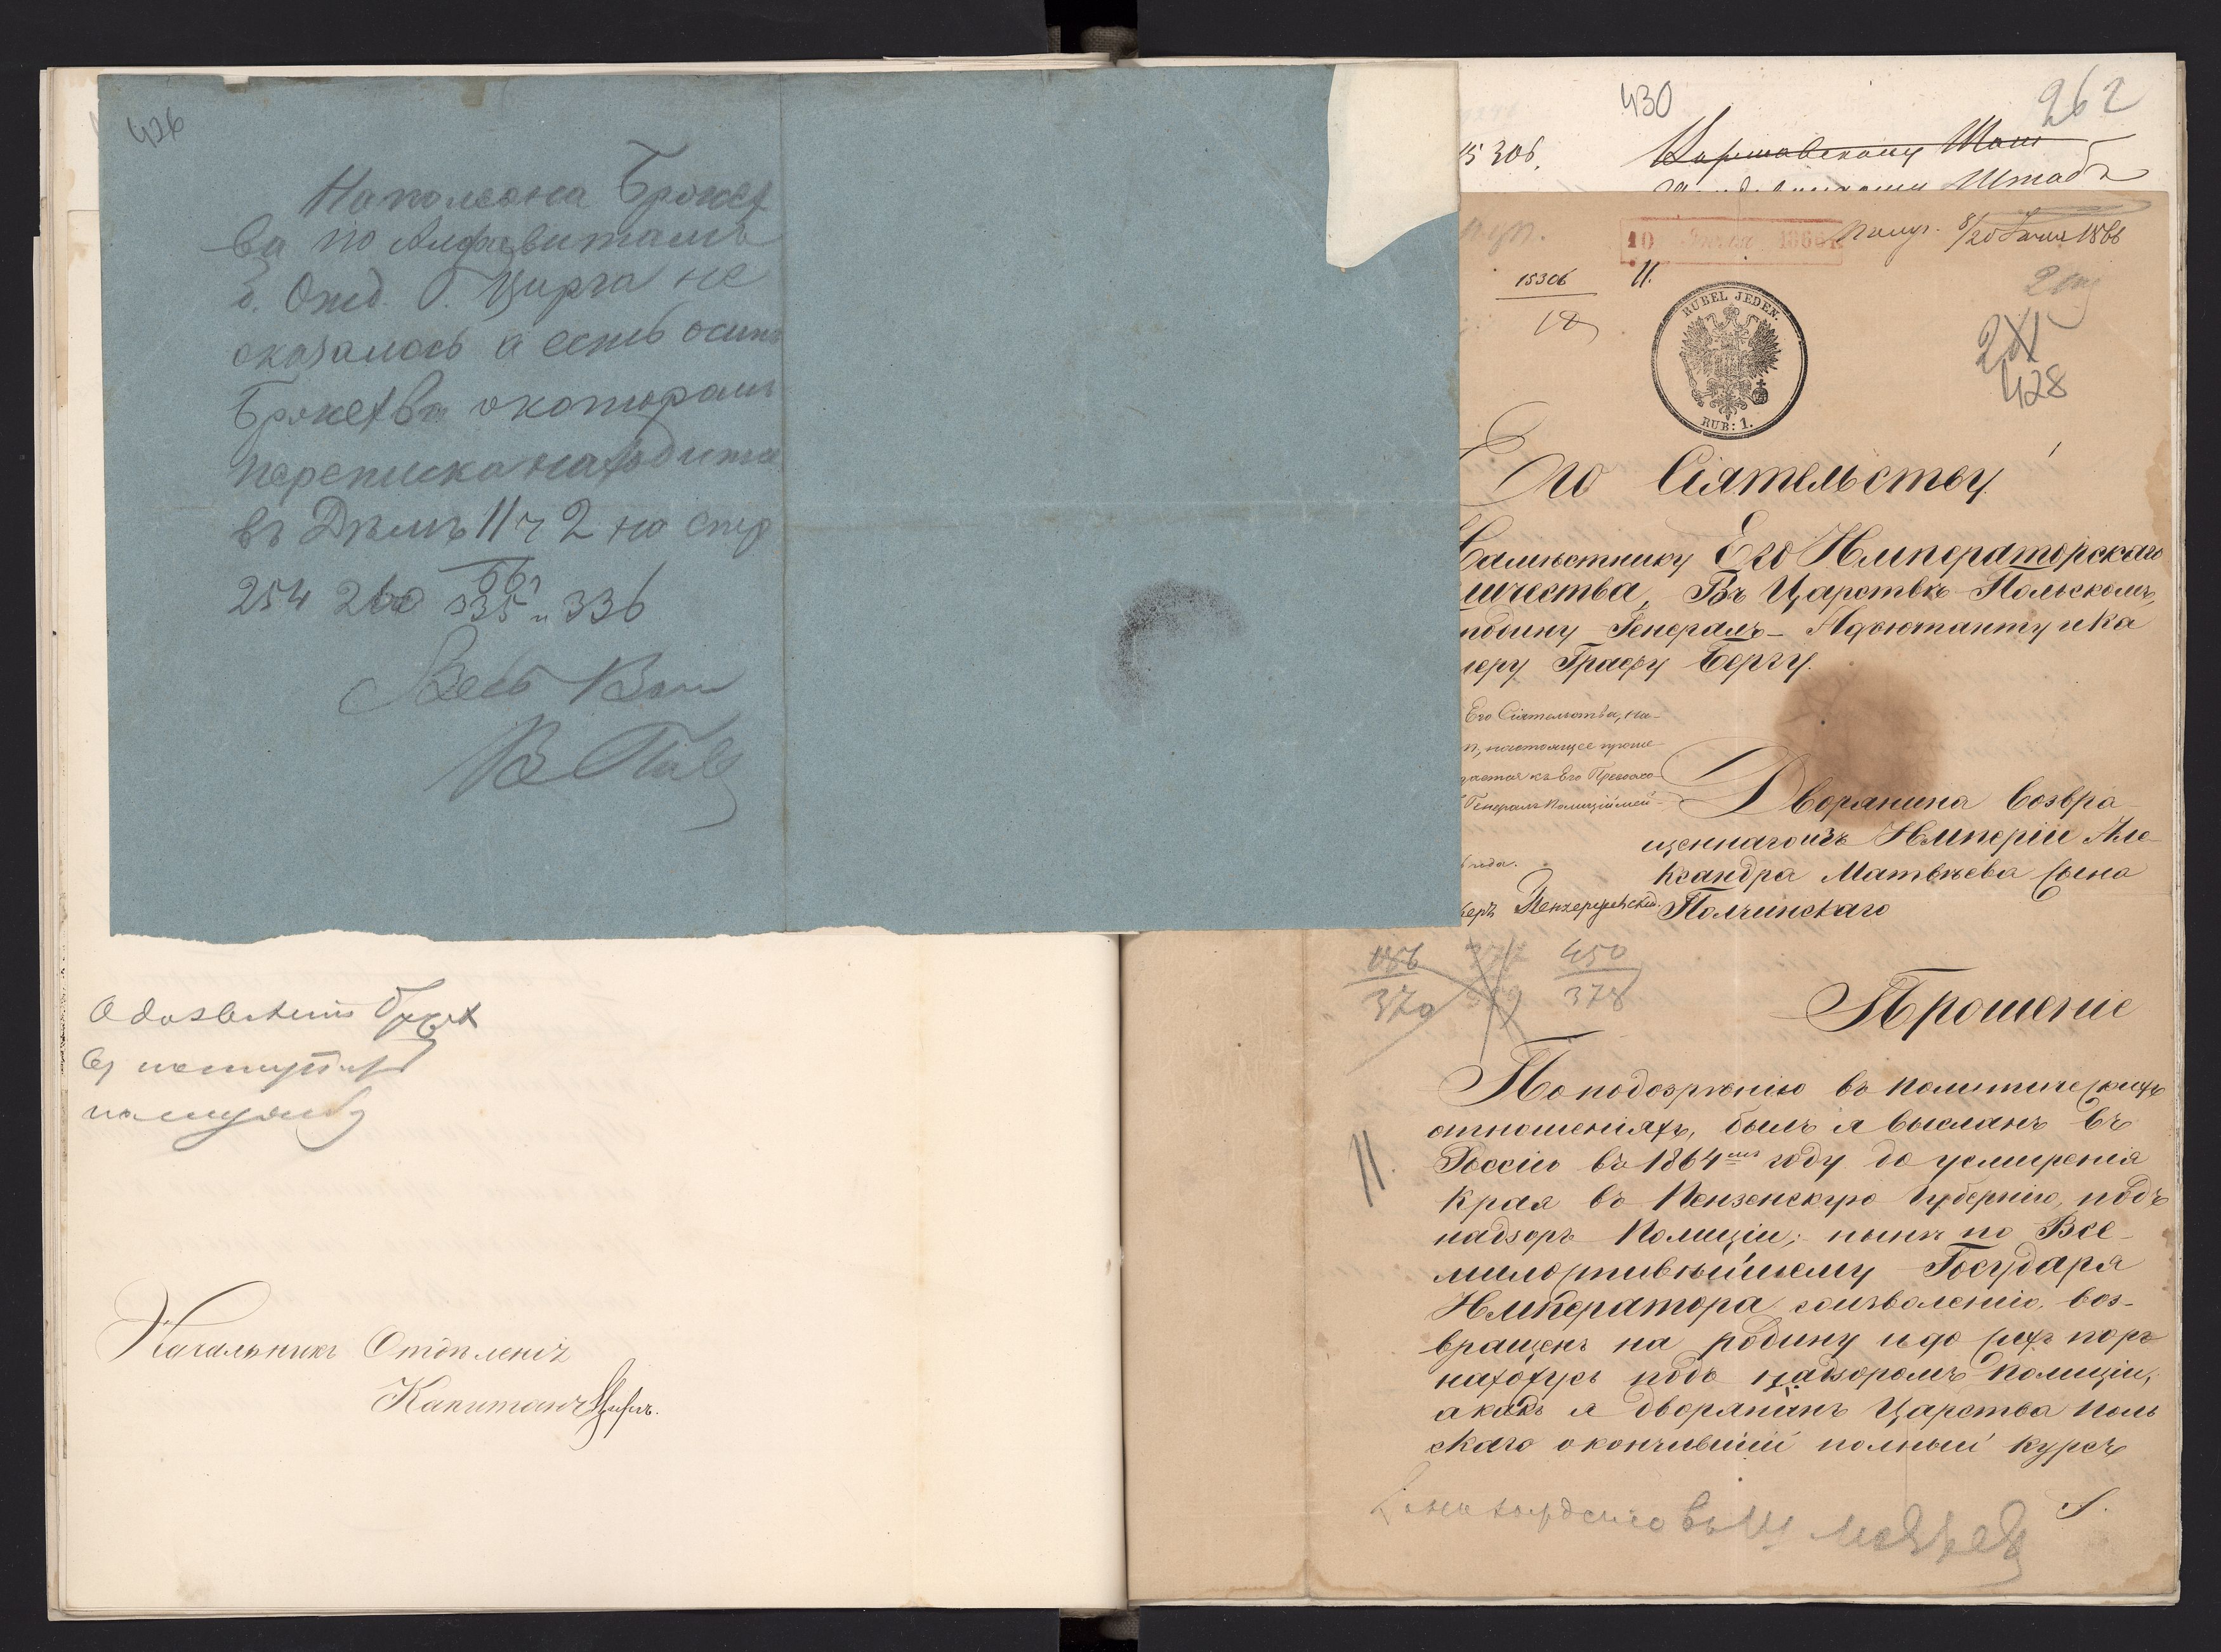 426
Наполеона Брохе
ва по Алфавитамъ
Отд. Г. Цирга не
оказалось а есть осипъ
Брохева о которомъ
переписка находится
въ Дѣлѣ 11 ч 2 на стр
254 260 335 и 336
Весь Вашъ
Начальникъ Отдѣленія
Капитанъ
430
262
15306.
Варшавскому
Штабъ
10 1866
Получ. 8/20 1866
15306
RUBEL JEDEN.
RUB: 1.
428
Его Сіятельству
Намѣстнику Его Императорскаго
личества, Въ Царствѣ Польскомъ,
подину Генералъ-Адъютанту и Ка
леру Графу Бергу.
Его Сіятельства, на-
п, настоящее проше
дается къ Его Превосхо-
Генералъ Полиціймей-
Дворянина Возвра
щеннаго изъ Имперіи Але-
ксандра Матвѣева Сына
Полчинскаго
186
370
450
378
Прошеніе
По подозрѣнію въ политическихъ
отношеніяхъ, былъ я высланъ въ
Россію въ 1864мъ году до усмиренія
Края въ Пензенскую Губернію, подъ
надзоръ Полиціи; нынѣ по Все-
милостивѣйшему Государя
Императора соизволенію, воз-
вращенъ на родину и до сихъ поръ
нахожусь подъ надзоромъ Полиціи,
а какъ я дворянинъ Царства Поль
скаго окончившій полный курсъ
11.